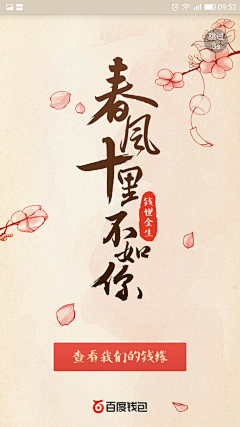 09:52
跳过
3s
春风十里不如你
钱世金生
查看我们的钱缘
百度钱包